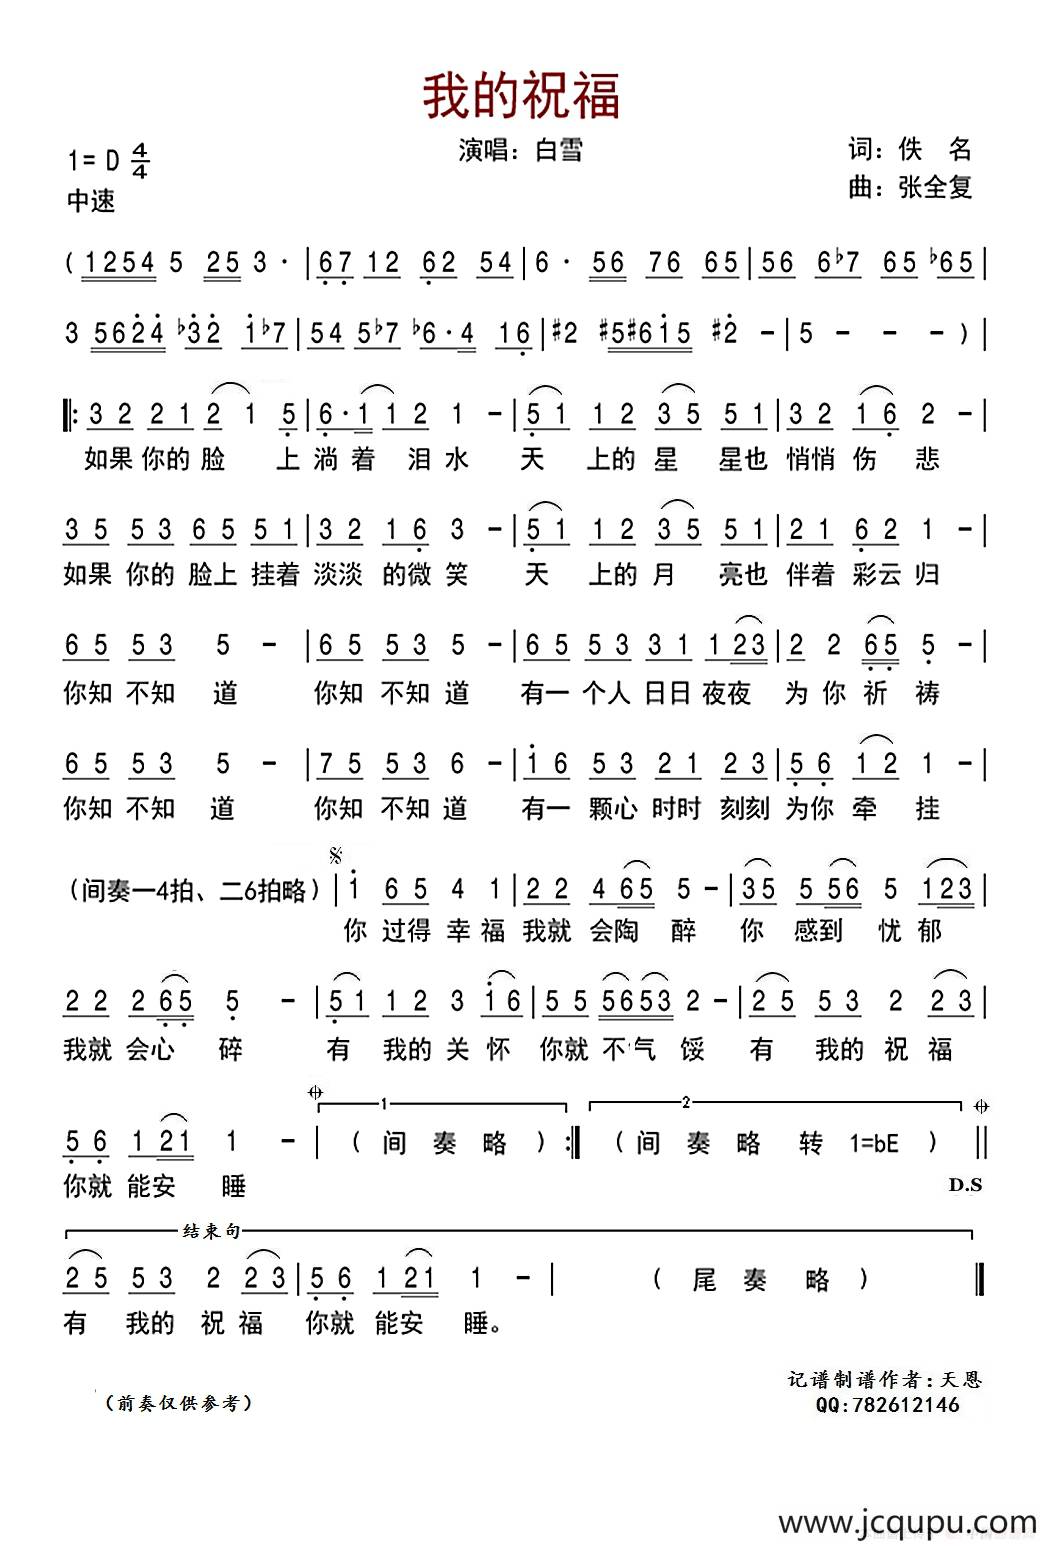 我的祝福
1= D 4/4
演唱：白雪
词：佚 名
中速
曲：张全复
( 1254 5 25 3 · | 67 12 62 54 | 6 · 56 76 65 | 56 6♭7 65 ♭65 |
3 5624 ♭32 1♭7 | 54 5♭7 ♭6·4 16 | #2 #5#615 #2 - | 5 - - - ) |
‖: 32 21 2 1 5 | 6·1 1 2 1 - | 51 12 35 51 | 32 16 2 - |
如果 你的 脸 上 淌 着 泪 水 天 上的 星 星也 悄悄 伤 悲
35 53 65 51 | 32 16 3 - | 51 12 35 51 | 21 62 1 - |
如果 你的 脸上 挂着 淡淡 的微 笑 天 上的 月 亮也 伴着 彩云 归
65 53 5 - | 65 53 5 - | 65 53 31 123 | 2 2 65 5 - |
你知 不知 道 你知 不知 道 有一 个人 日日 夜夜 为 你 祈 祷
65 53 5 - | 75 53 6 - | 16 53 21 23 | 56 12 1 - |
你知 不知 道 你知 不知 道 有一 颗心 时时 刻刻 为你 牵 挂
(间奏一4拍、二6拍略) | 1 65 4 1 | 22 4 65 5 - | 35 5 56 5 123 |
你 过得 幸 福 我就 会陶 醉 你 感到 忧 郁
22 2 65 5 - | 51 12 3 16 | 55 5653 2 - | 25 53 2 23 |
我就 会心 碎 有 我的 关 怀 你就 不气 馁 有 我的 祝 福
1 2
56 1 21 1 - | ( 间 奏 略 ) :‖ ( 间 奏 略 转 1=bE ) ‖
你就 能安 睡 D.S
结束句
25 53 2 23 | 56 1 21 1 - | ( 尾 奏 略 ) ‖
有 我的 祝 福 你就 能安 睡。
记谱制谱作者:天恩
(前奏仅供参考)
QQ:782612146
www.jcqupu.com